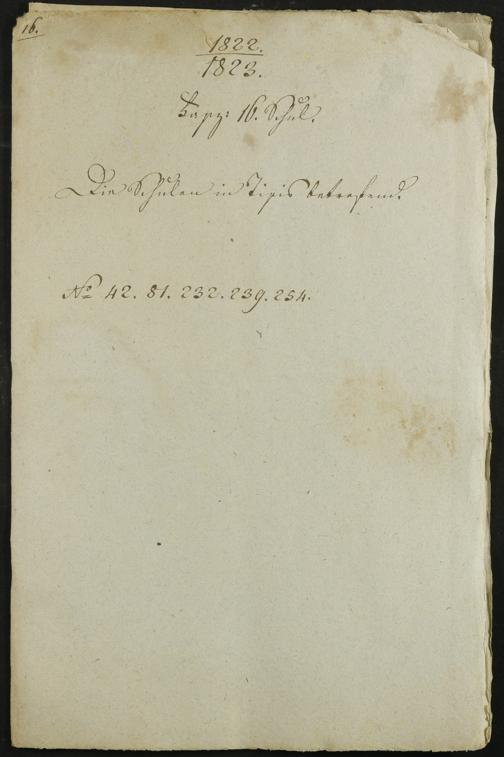 16.
1822.
1823.
Fasz: 16. Schul.
Die Schulen in Tisis betreffend.
No 42. 81. 232. 239. 254.